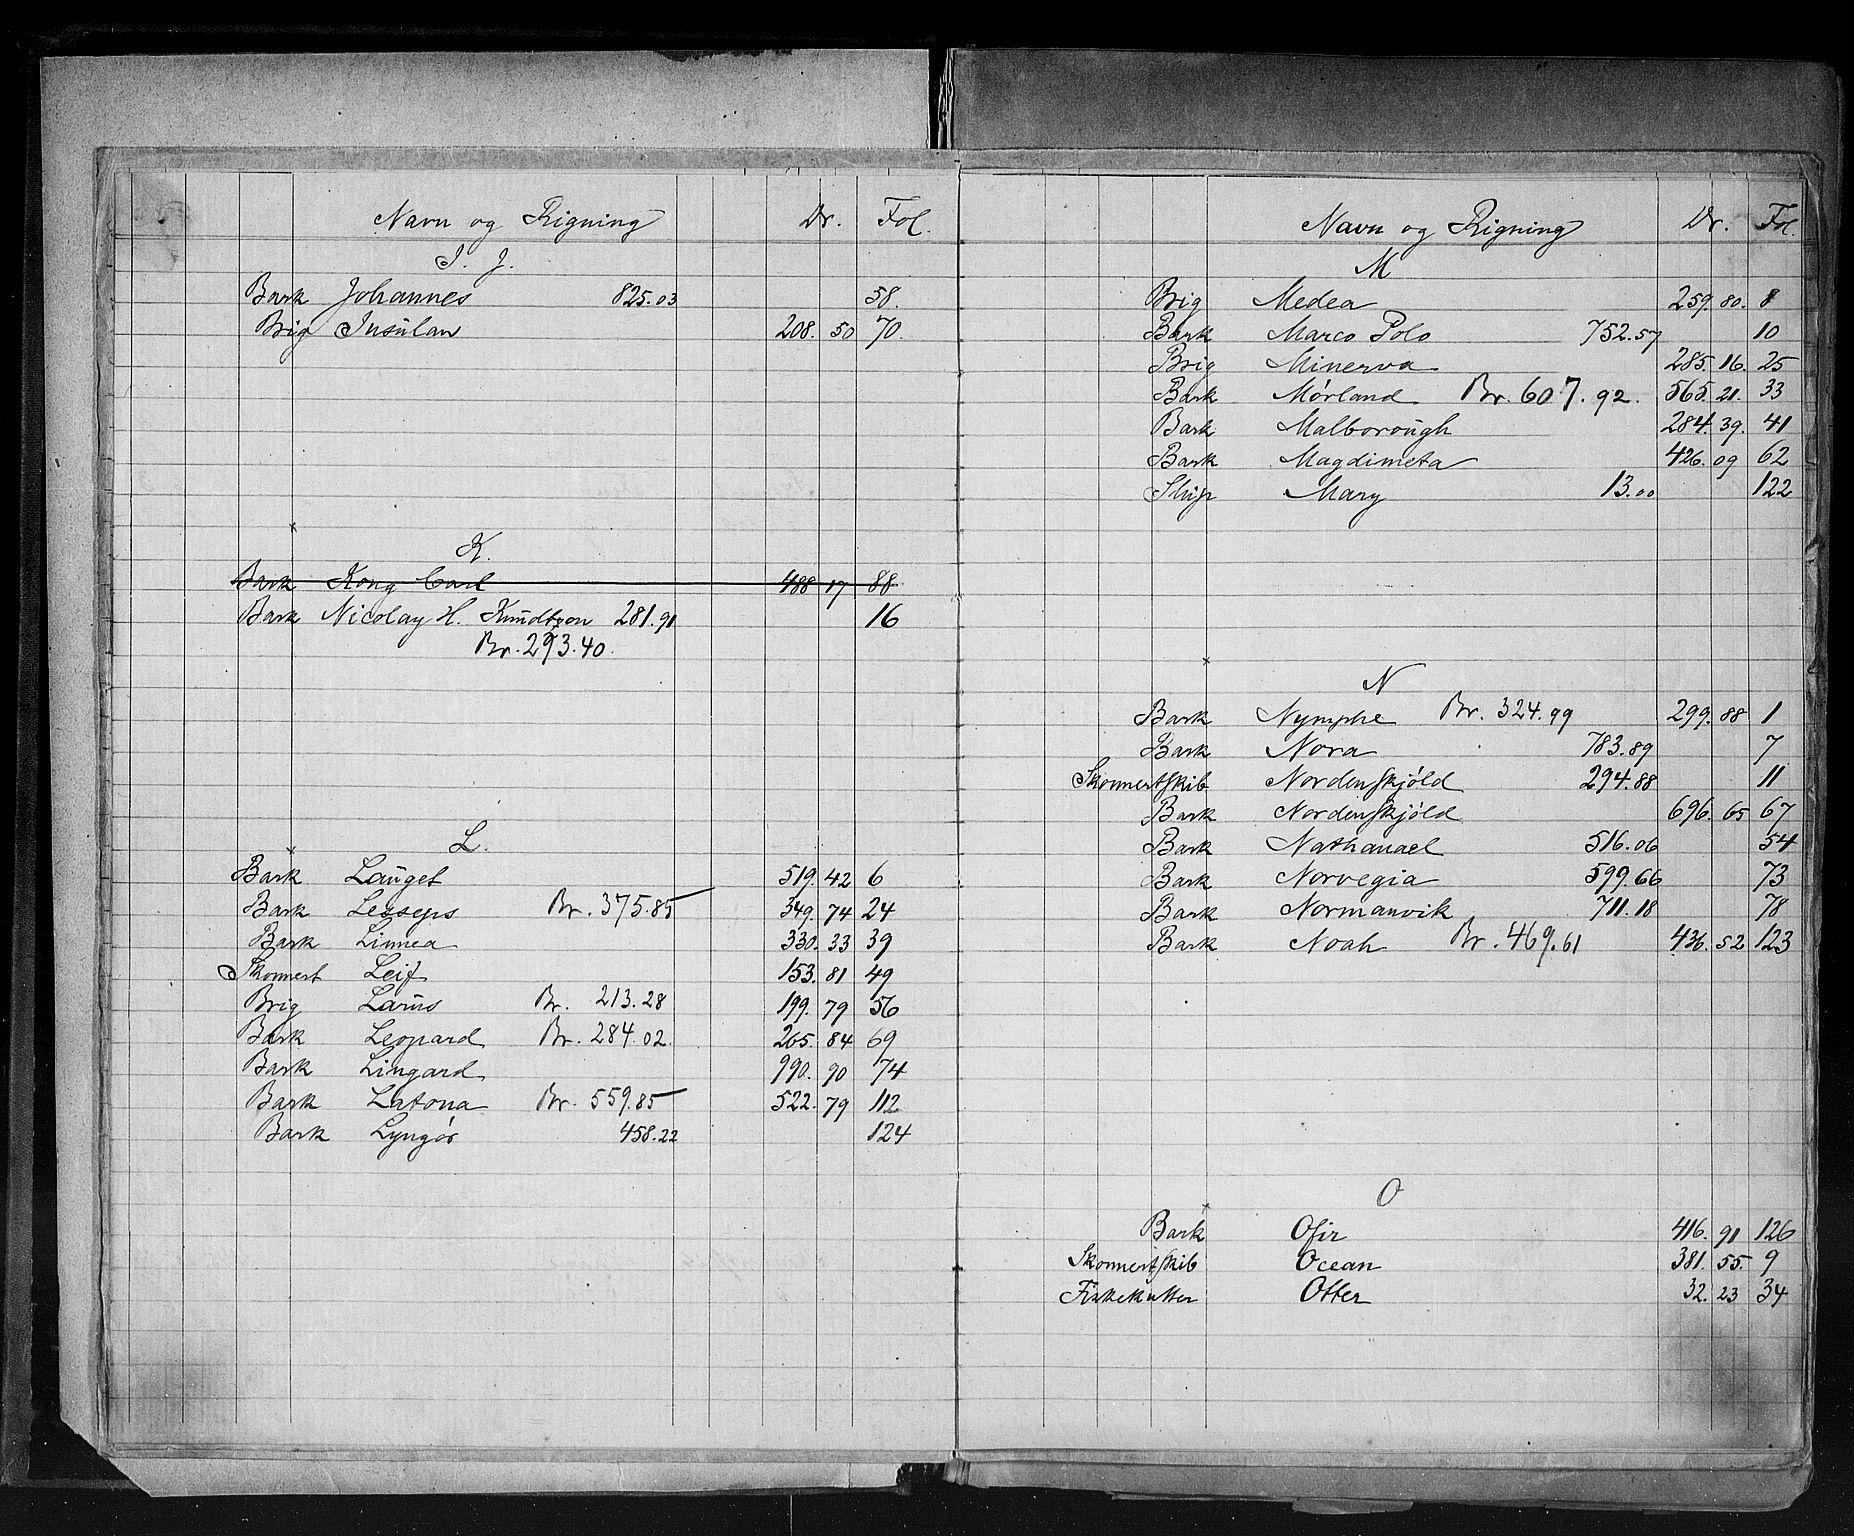 Navn og Rigning Dr. Fol.
I. J.
Bark Johannes 825.03 58.
Brig Insulan 208. 50 70.
K.
Bark Kong Carl 488 17 88
Bark Nicolay H. Knudtzon 281.91 16
Br. 293.40.
L.
Bark Lauget 519. 42 6
Bark Lesseps Br. 375.85 349. 74 24
Bark Linnea 330. 33 39
Skonnert Leif 153. 81 49
Brig Larus Br. 213.28 199. 79 56
Bark Leopard Br. 284.02. 265. 84 69
Bark Lingard 990. 90 74
Bark Latona Br. 559.85 522. 79 112
Bark Lyngør 458.22 124
Navn og Rigning Dr. Fol.
M
Brig Medea 259. 80. 8
Bark Marco Polo 752.57 10
Brig Minerva 285. 16. 25
Bark Mørland Br. 607.92. 565. 21. 33
Bark Malborough 284. 39. 41
Bark Magdimeta 426. 09 62
Slup Mary 13.00 122
N
Bark Nymphe Br. 324.99 299. 88 1
Bark Nora 783.89 7
Skonnertskib Nordenskjöld 294.88 11
Bark Nordenskjöld 696. 65 67
Bark Nathanael 516.06 54
Bark Norvegia 599.66 73
Bark Normanvik 711.18 78
Bark Noah Br. 469.61 436. 52 123
O
Bark Ofir 416. 91 126
Skonnertskib Ocean 381. 55. 9
Fiskekutter Otter 32. 23 34